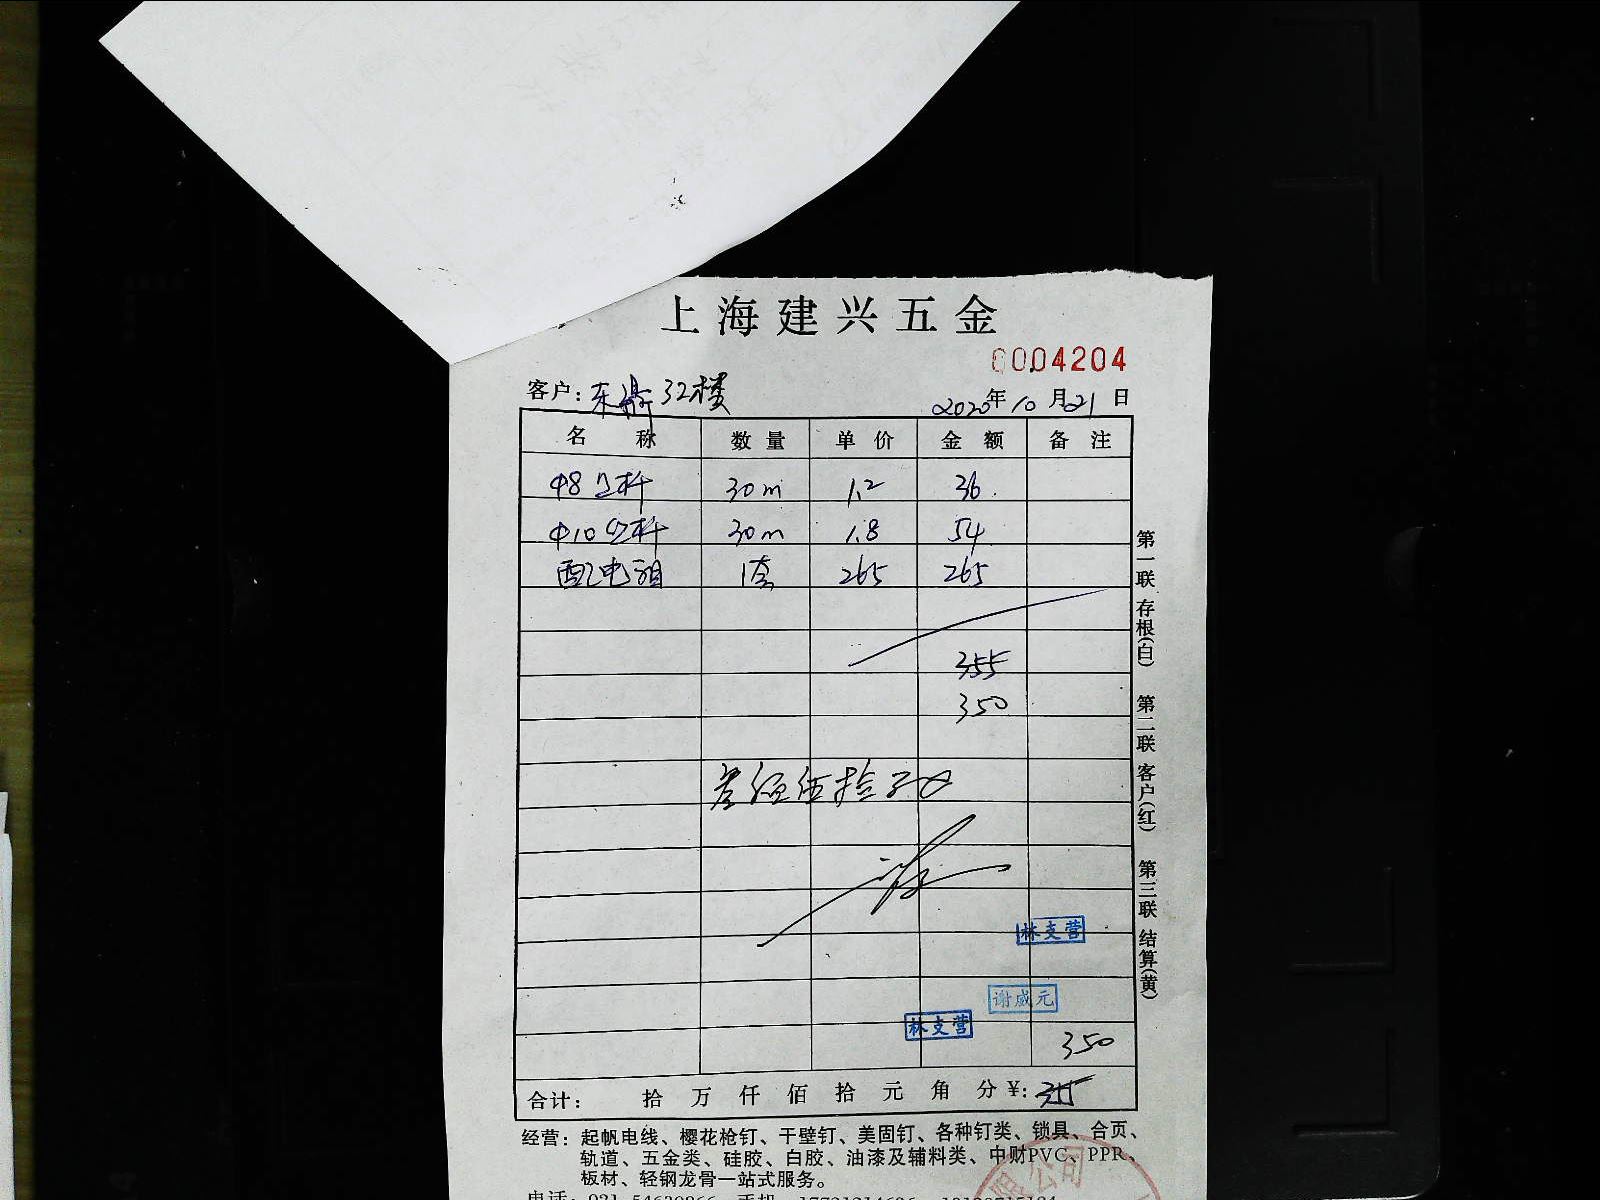 上海建兴五金
0004204
客户: 32楼 2020年10月21日
名称 数量 单价 金额 备注
Φ8 30m 1.2 36
Φ10 30m 1.8 54
配电箱 1套 265 265
355
350
叁佰伍拾元
林支营
谢威元
林支营
350
合计: 拾 万 仟 佰 拾 元 角 分 ¥:
经营: 起帆电线、樱花枪钉、干壁钉、美固钉、各种钉类、锁具、合页、
轨道、五金类、硅胶、白胶、油漆及辅料类、中财PVC、PPR、
板材、轻钢龙骨一站式服务。
第一联 存根(白) 第二联 客户(红) 第三联 结算(黄)
公司